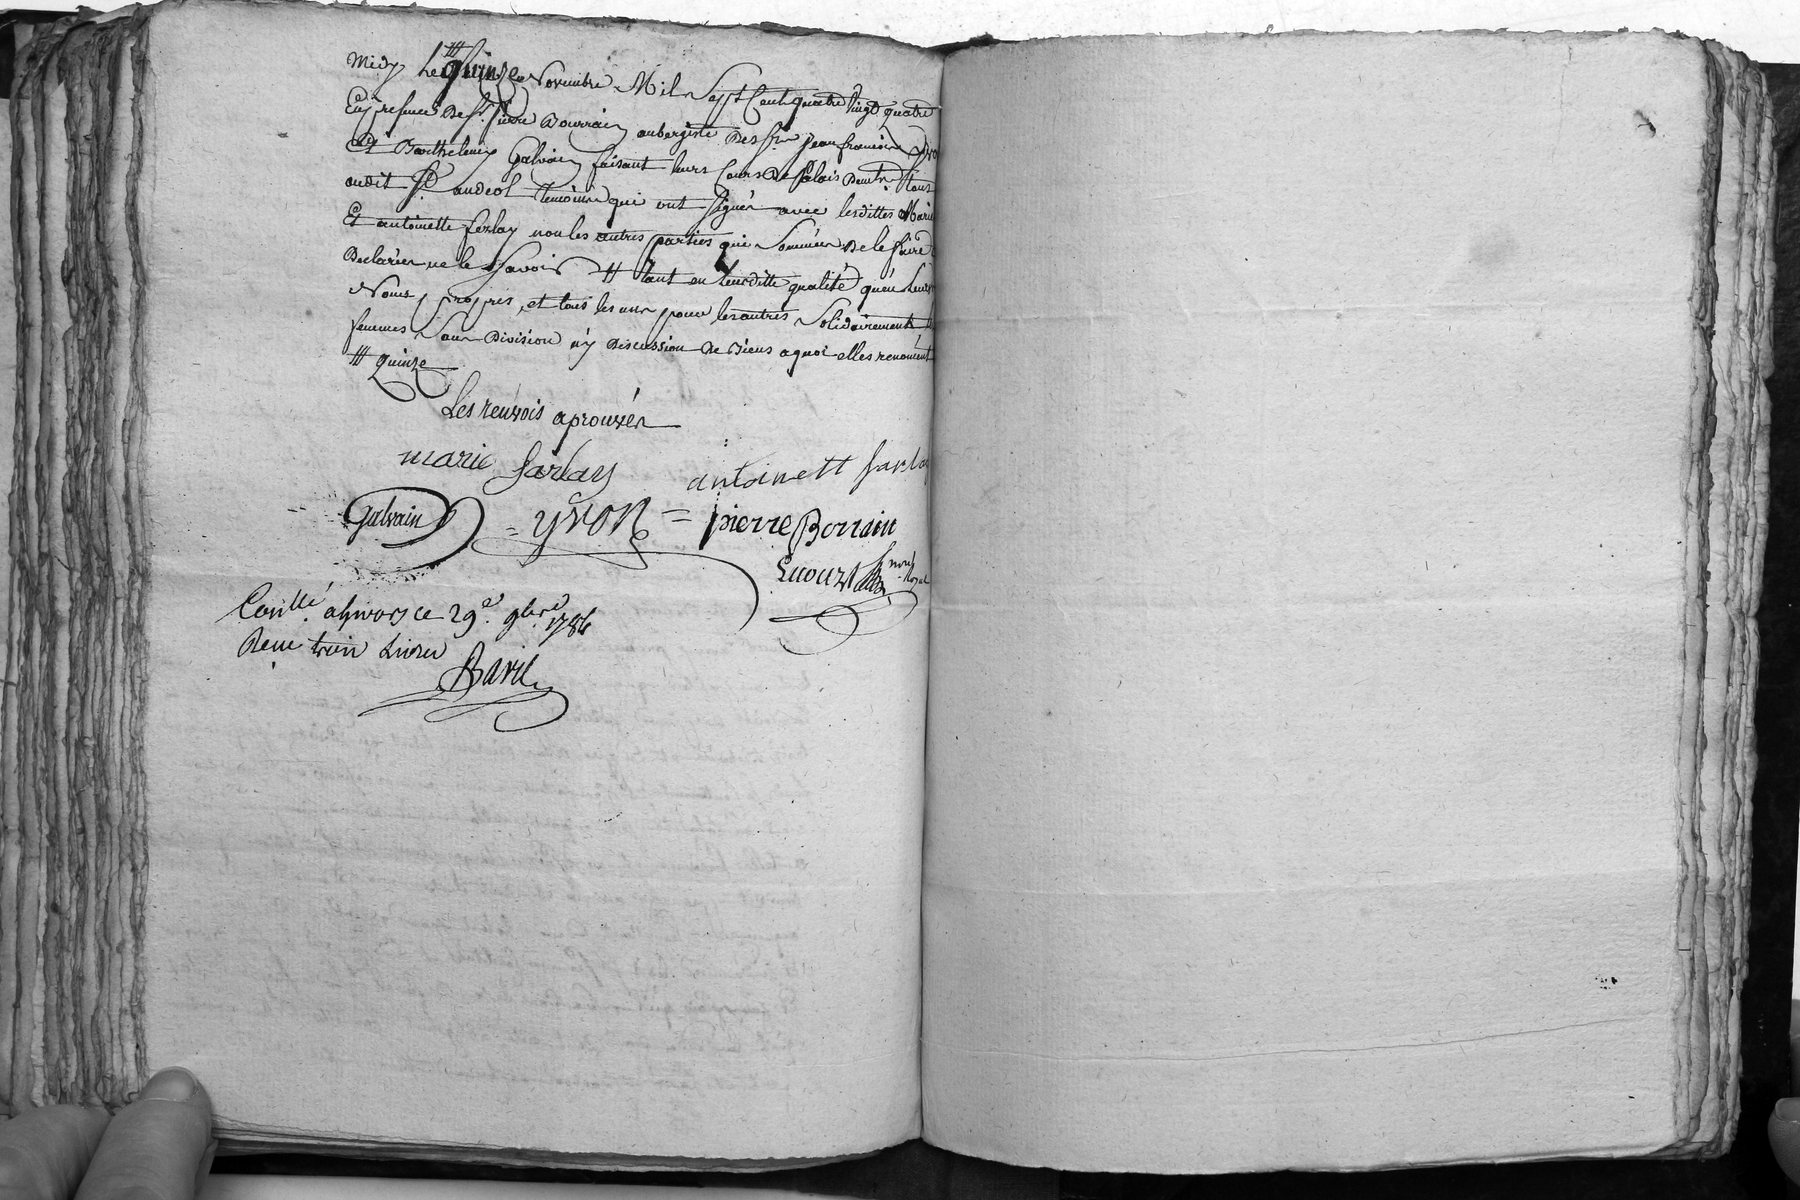 midy le /// quinze Novembre Mil Sept Cent quatre vingt quatre
En presence de sr. pierre Bourrain aubergiste des srs. jean francois yvon
Et Barthelemy Galvain faisant leurs Cours de palais demt. tous
audit st. andeol temoins qui ont signés avec lesdittes Marie
Et antoinette ferlay non les autres parties qui sommées de le faire ont
Declarées ne le savoir # tant en leurditte qualité qu'en leurs
Noms propres, et tous les uns pour les autres solidairement
femmes sans Division ny Discussion de Biens a quoi elles renoncent
/// quinze
Les renvois aprouvés
marie farlay antoinett farlay
Galvain = yvon = pierre Borrain
nore. Royal
Conllé. ce 29e. 9bre 1784
trois Livres
Bavil